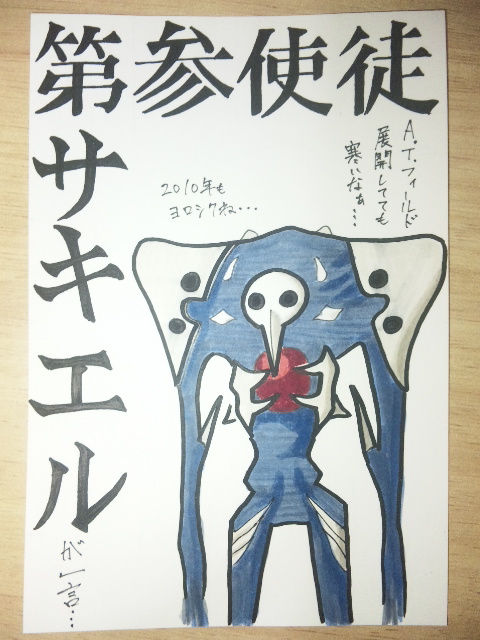 第参使徒
サキエル
が一言…
A.T.フィールド
展開してても
寒いなぁ…
2010年も
ヨロシクね…